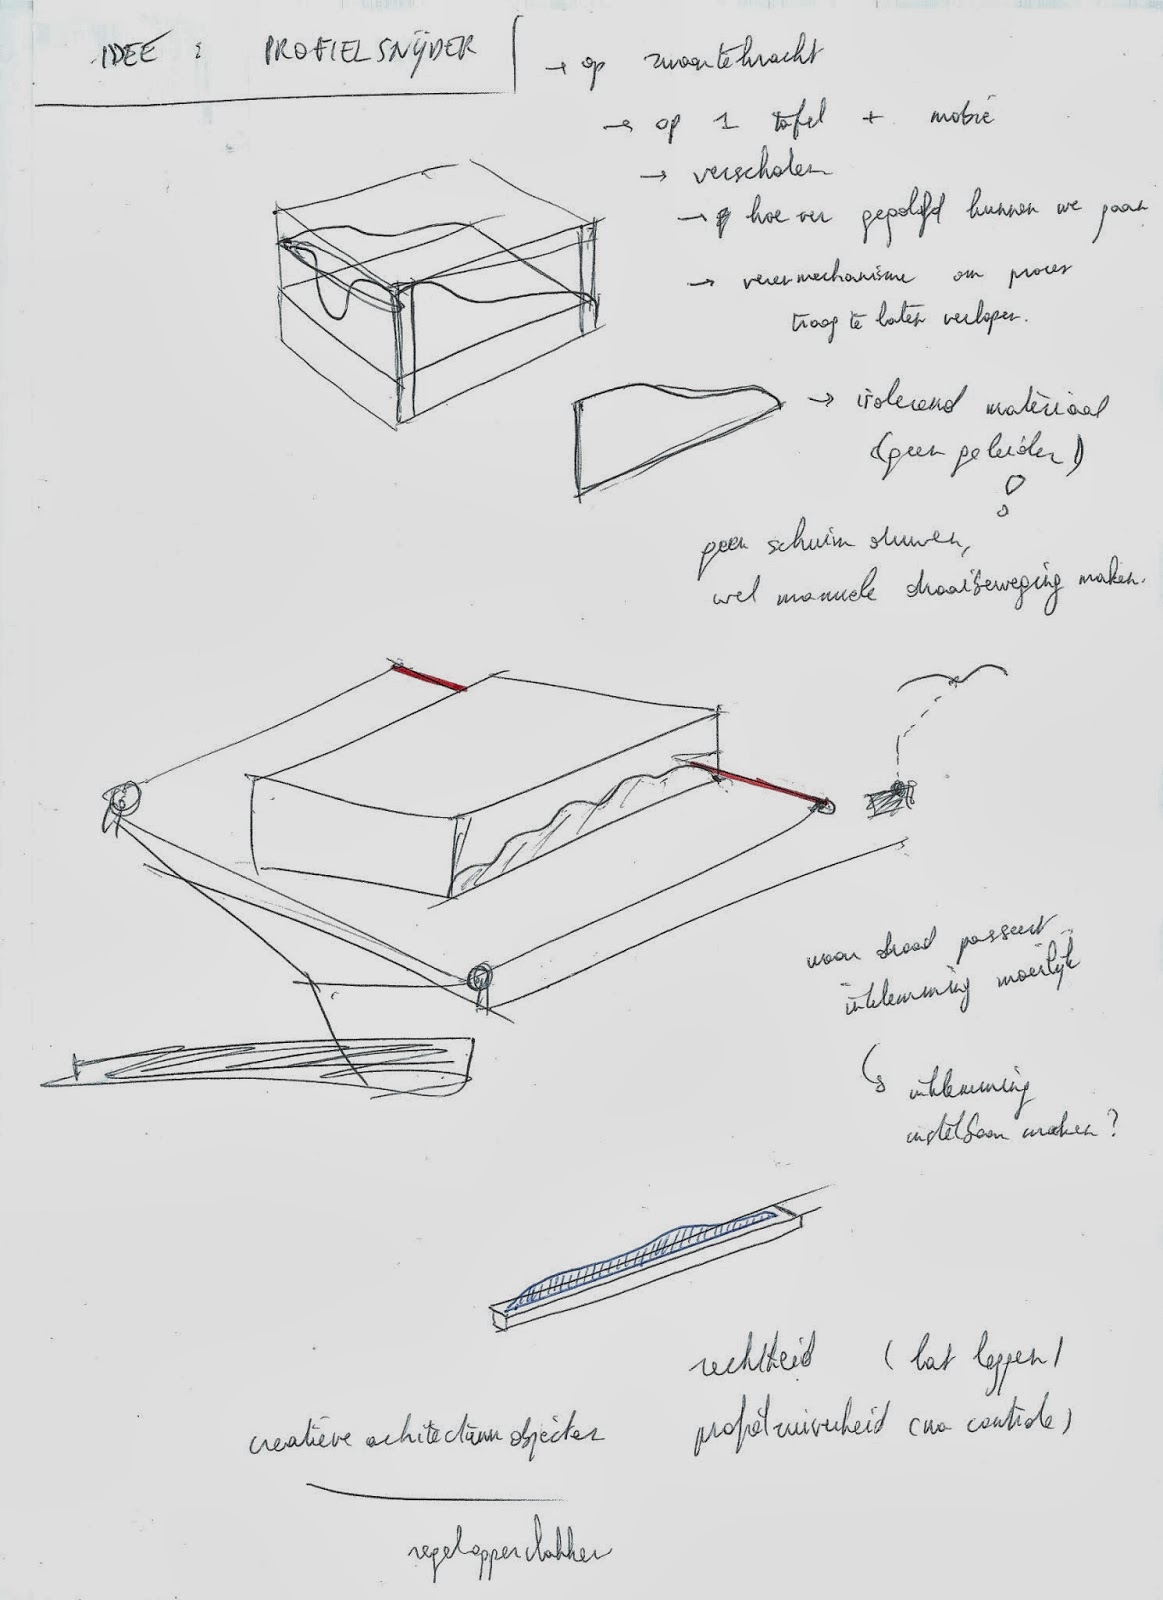 IDEE : PROFIELSNIJDER
→ op zwaartekracht
→ op 1 tafel + mobie
→ verschalen
→ hoe ver gepolijfd kunnen we gaan
→ verenmechanisme om proces
traag te laten verlopen.
→ isolerend materiaal
(geen geleider)
geen schuim duwen,
wel manuele draaibeweging maken.
waar draad passeert
inklemming moeilijk
inklemming
instelbaar maken?
rechtheid (lat leggen)
profielzuiverheid (na controle)
creatieve architectuurobjecten
regeloppervlakken